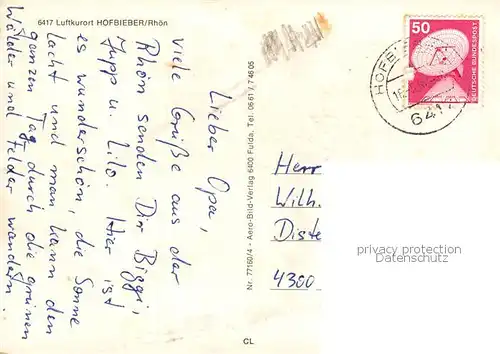 6417 Luftkurort HOFBIEBER/Rhön
Lieber Opa,
viele Grüße aus der
Rhön senden Dir Biggi,
Jupp u. Lilo. Hier ist
es wunderschön, die Sonne
lacht und man kann den
ganzen Tag durch die grünen
Wälder und Felder wandern.
Nr. 77160/4 - Aero-Bild-Verlag 6400 Fulda, Tel. 0661 / 7 46 05
50
DEUTSCHE BUNDESPOST
HOFBIE
6417
Herr
Wilh.
Diste
4300
privacy protection
CL